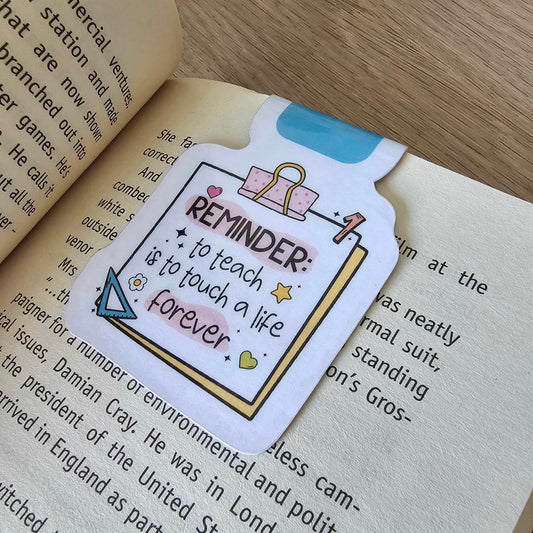 mercial ventures,
station and made
that are now shown
branched out into
ter games. He's
. He calls it
out all the
REMINDER:
to teach
is to touch a life
forever
1
She
correct
And
combed
white s
outside
venor
Mrs
"...t
paigner for a number of environmental and polit
ical issues, Damian Cray. He was in Lond
the president of the United St
arrived in England as part
witched
film at the
was neatly
rmal suit,
standing
on's Gros-
eless cam-